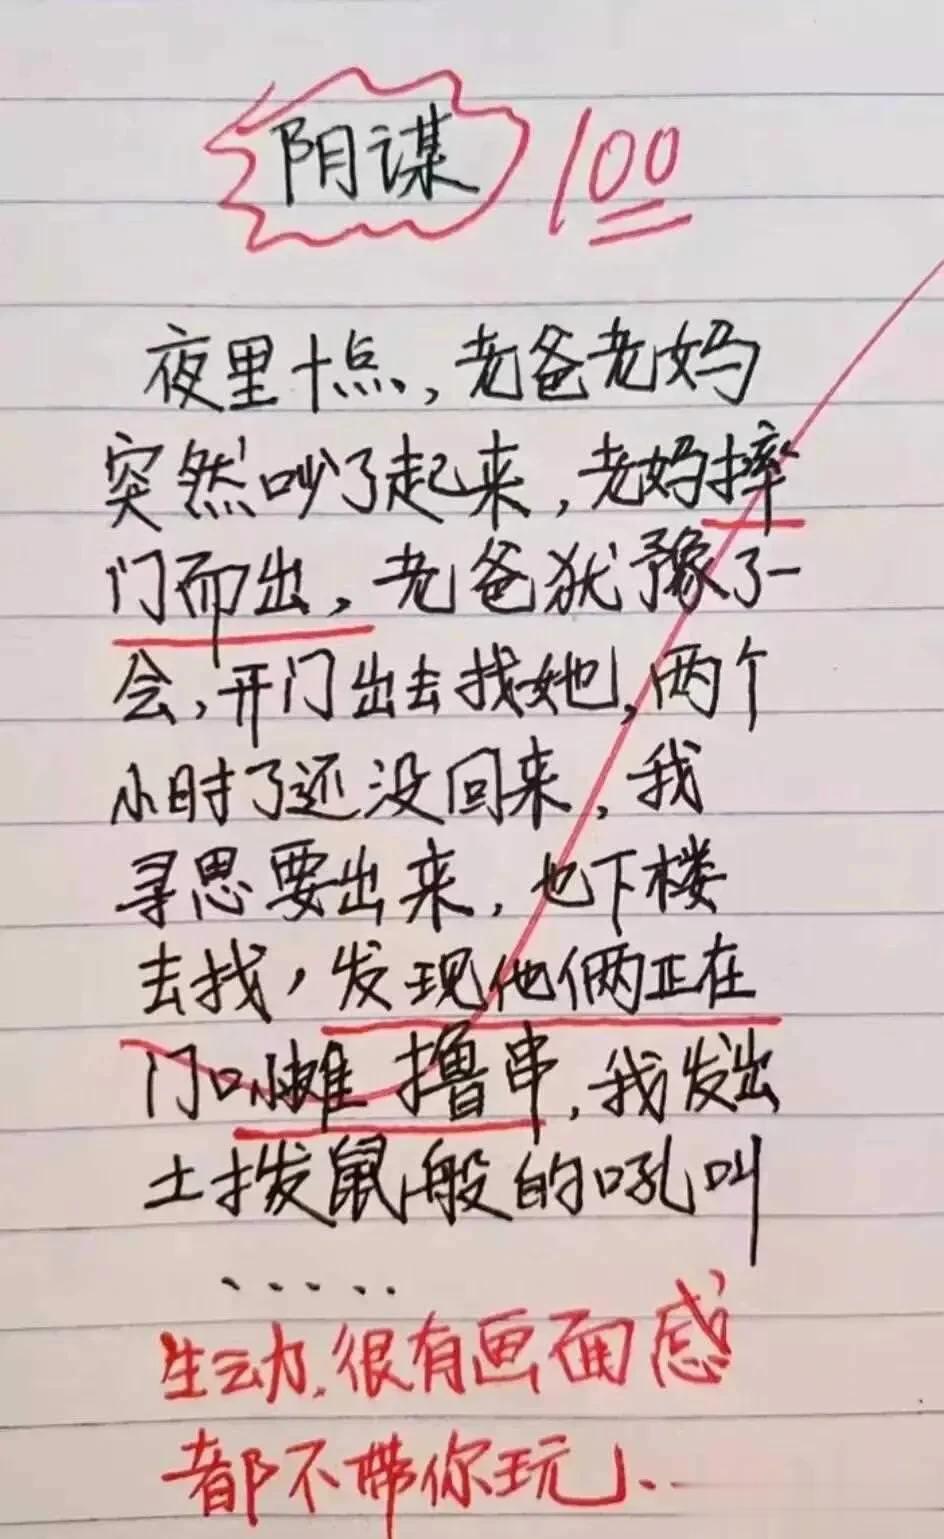 阴谋 100
夜里十点，老爸老妈
突然吵了起来，老妈摔
门而出，老爸犹豫了一
会，开门出去找她，两个
小时了还没回来，我
寻思要出来，也下楼
去找，发现他俩正在
门口小摊撸串，我发出
土拨鼠般的吼叫
......
生动，很有画面感
都不带你玩！